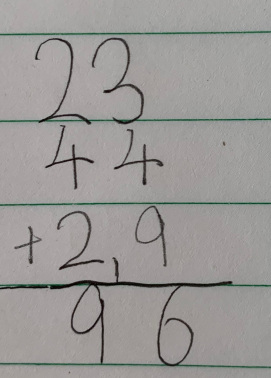 23
44
+2,9
96